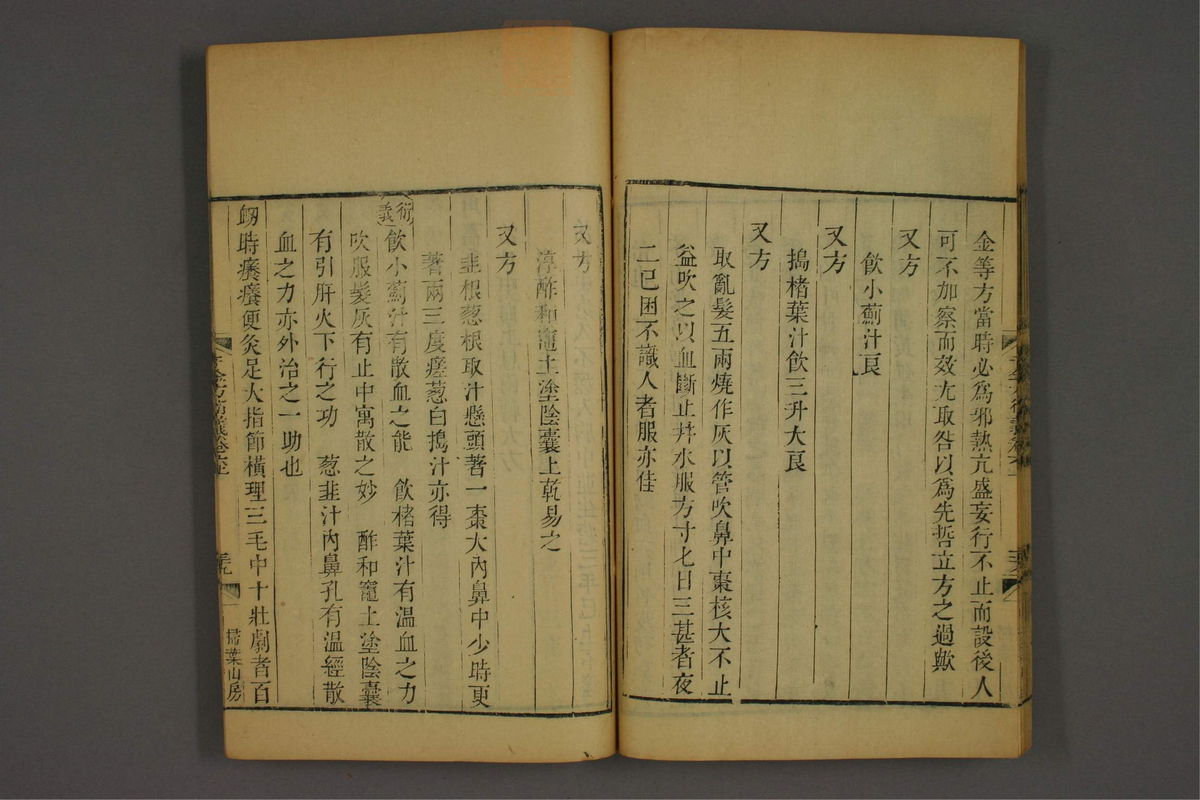 金等方當時必爲邪熱亢盛妄行不止而設後人
可不加察而效尤取咎以爲先哲立方之過歟
又方
飲小薊汁良
又方
搗楮葉汁飲三升大良
又方
取亂髮五兩燒作灰以管吹鼻中棗核大不止
益吹之以血斷止井水服方寸匕日三甚者夜
二已困不識人者服亦佳
又方
淳酢和竈土塗陰囊上乾易之
又方
韭根葱根取汁懸頭著一棗大內鼻中少時更
著兩三度瘥葱白搗汁亦得
衍義
飲小薊汁有散血之能 飲楮葉汁有温血之力
吹服髮灰有止中寓散之妙 酢和竈土塗陰囊
有引肝火下行之功 葱韭汁內鼻孔有温經散
血之力亦外治之一助也
衂時癢癢便灸足大指節橫理三毛中十壯劇者百
掃葉山房